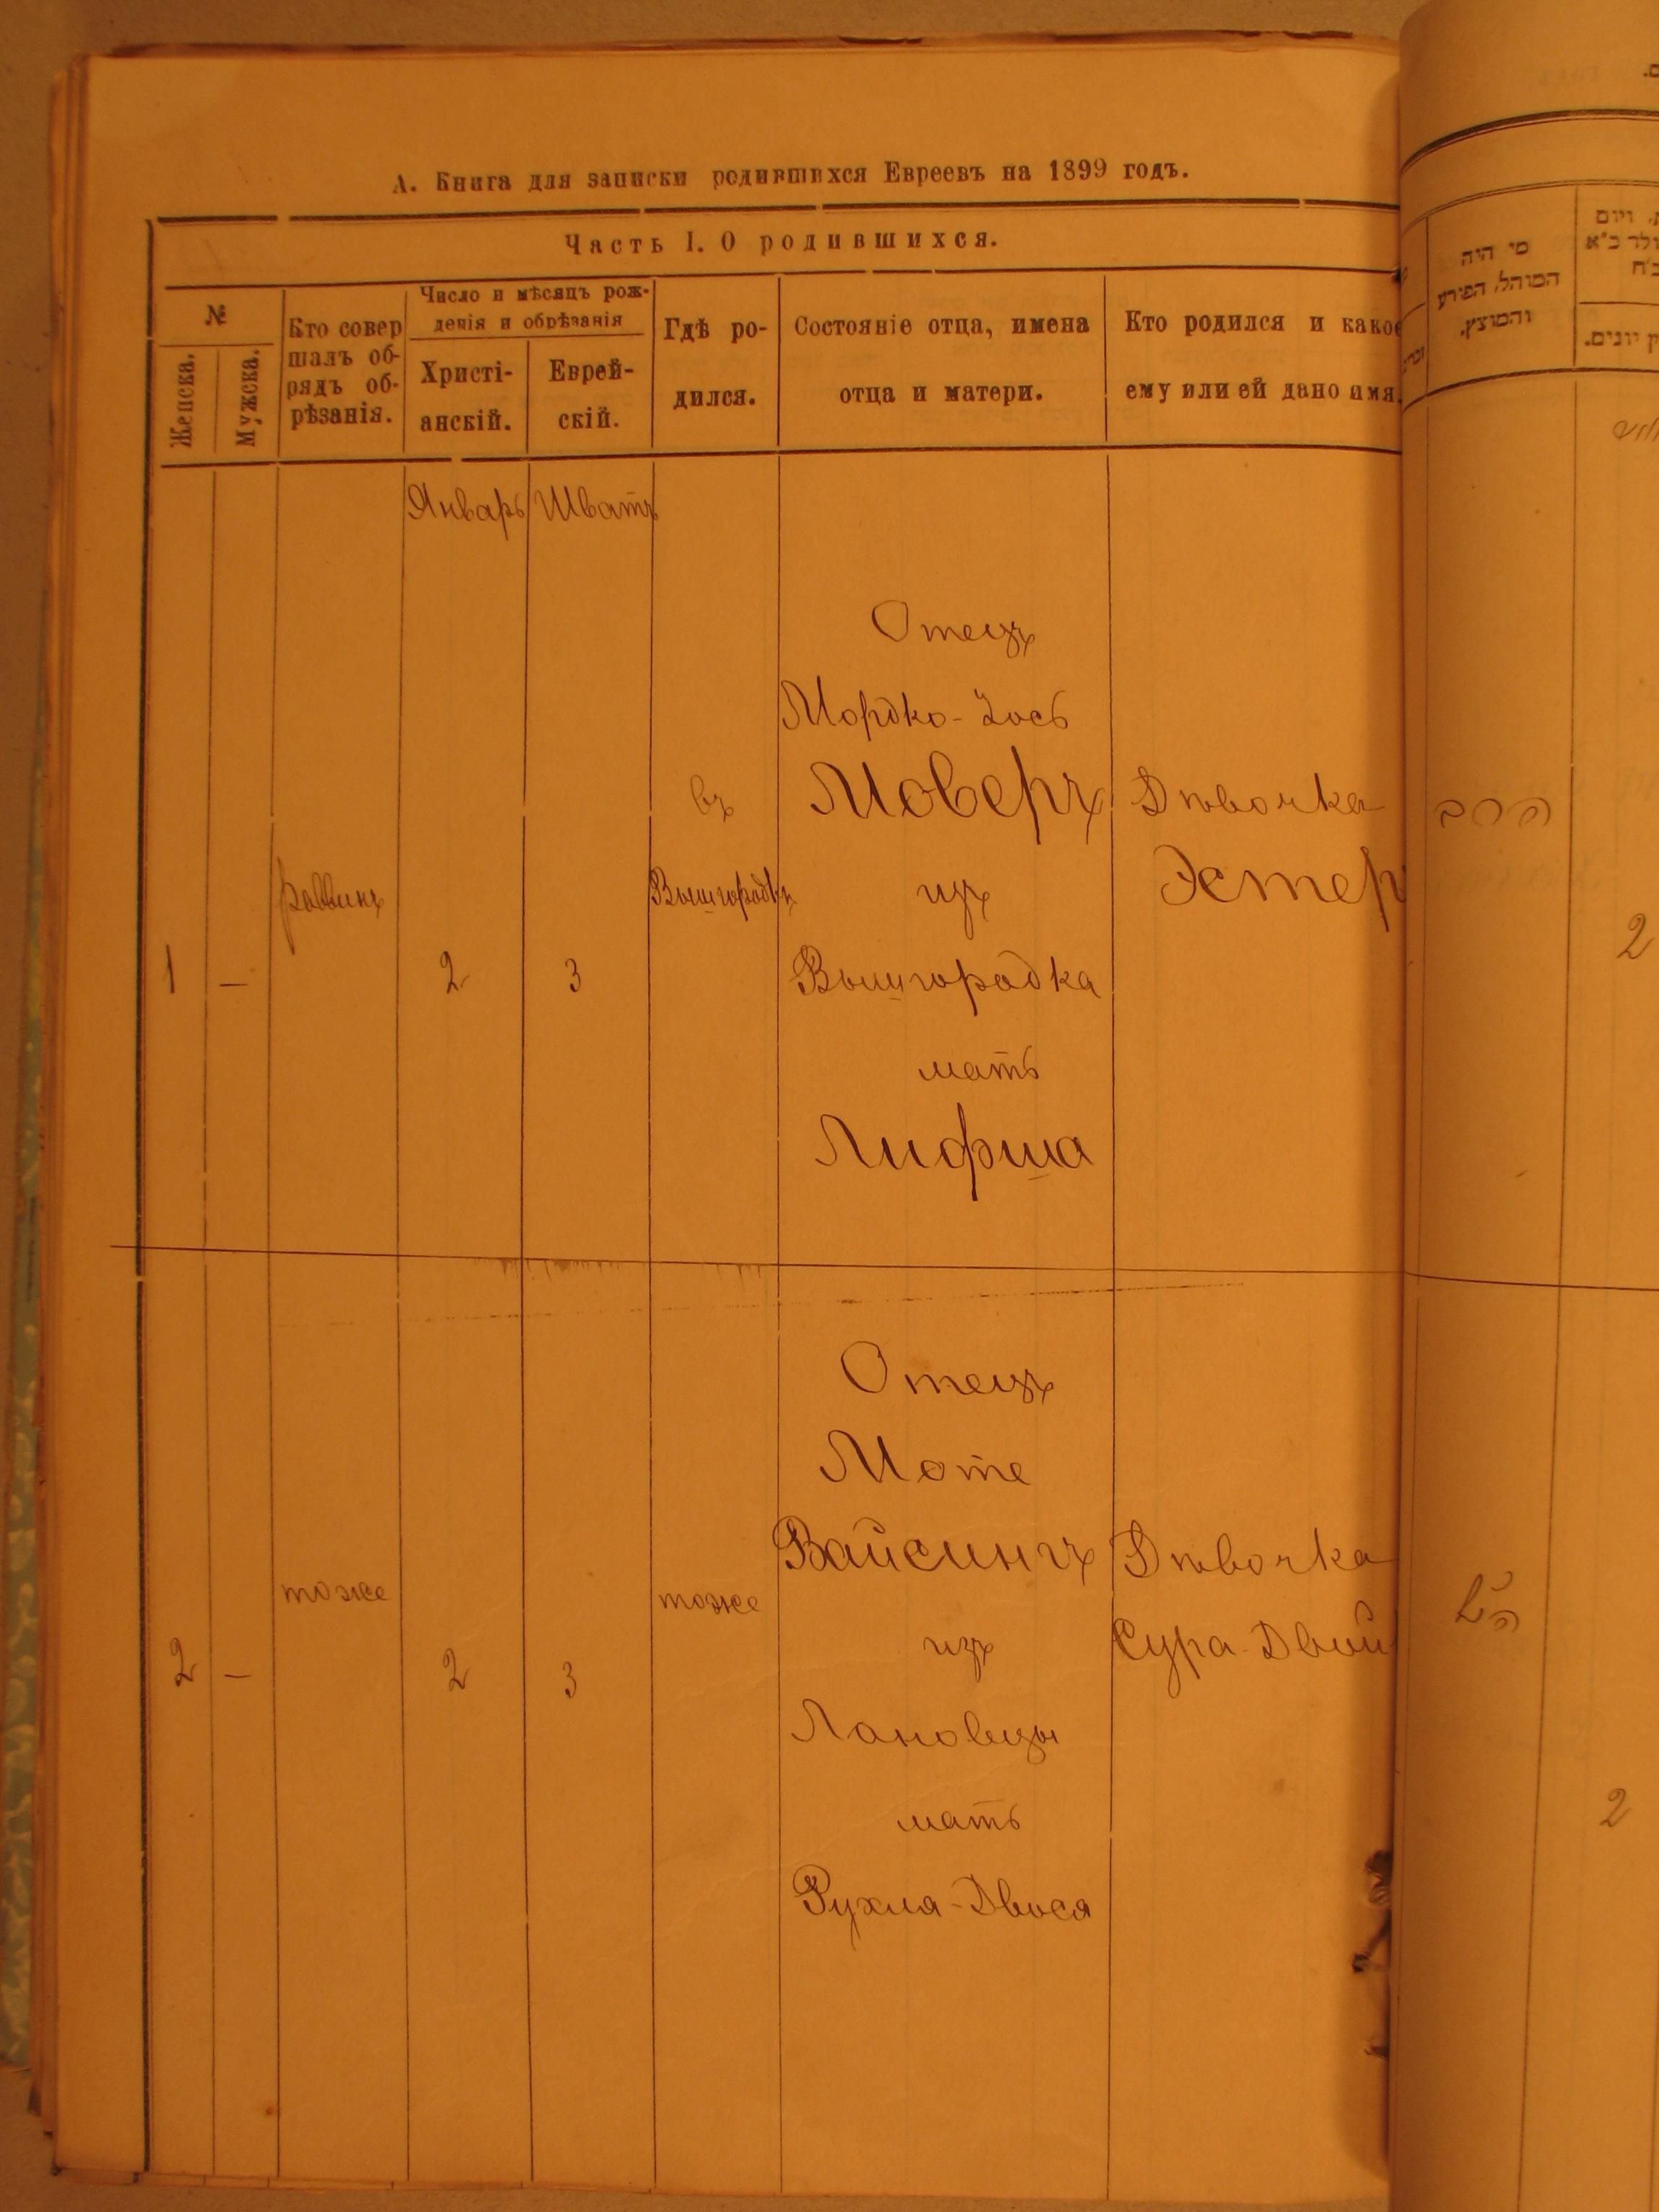 А. Книга для записки родившихся Евреевъ на 1899 годъ.
Часть I. О родившихся.
№
Женска.
Мужска.
Кто совер
шалъ об-
рядъ об-
рѣзанія.
Число и мѣсяцъ рож-
денія и обрѣзанія
Христі-
анскій.
Еврей-
скій.
Гдѣ ро-
дился.
Состояніе отца, имена
отца и матери.
Кто родился и какое
ему или ей дано имя.
Январь
Шватъ
1
—
раввинъ
2
3
въ
Вышгородкѣ
Отецъ
Мордко-Іось
Моверъ
изъ
Вышгородка
мать
Лифша
Дѣвочка
Эстер
2
—
тоже
2
3
тоже
Отецъ
Моте
Вайсингъ
изъ
Лановцы
мать
Рухля-Двося
Дѣвочка
Сура-Двой
מי היה
המוהל, הפורע
והמוצץ.
ויום
יונים.
הרב
2
הנ״ל
2